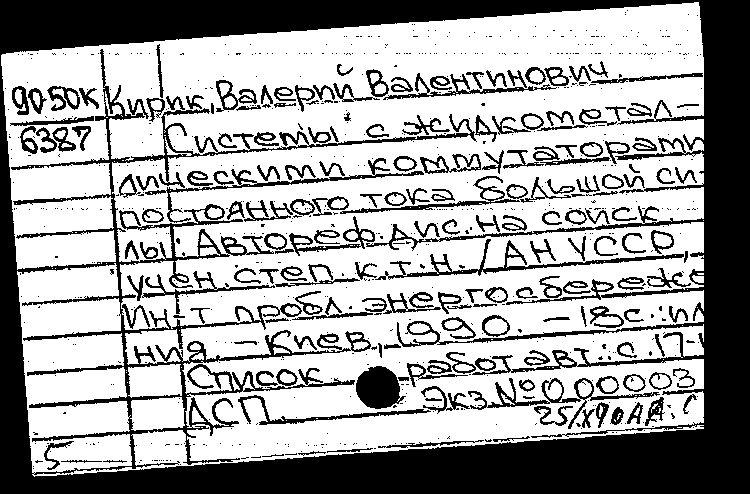 9050К Кирик, Валерий Валентинович.
6387 Системы с жидкометал-
лическими коммутаторами
постоянного тока большой си-
лы: Автореф. дис. на соиск.
учен. степ. к.т.н. / АН УССР,
Ин-т пробл. энергосбереже
ния. - Киев, 1990. - 18с.: ил
Список работ авт.: с. 17-1
ДСП. Экз. № 000003
25/X90
5